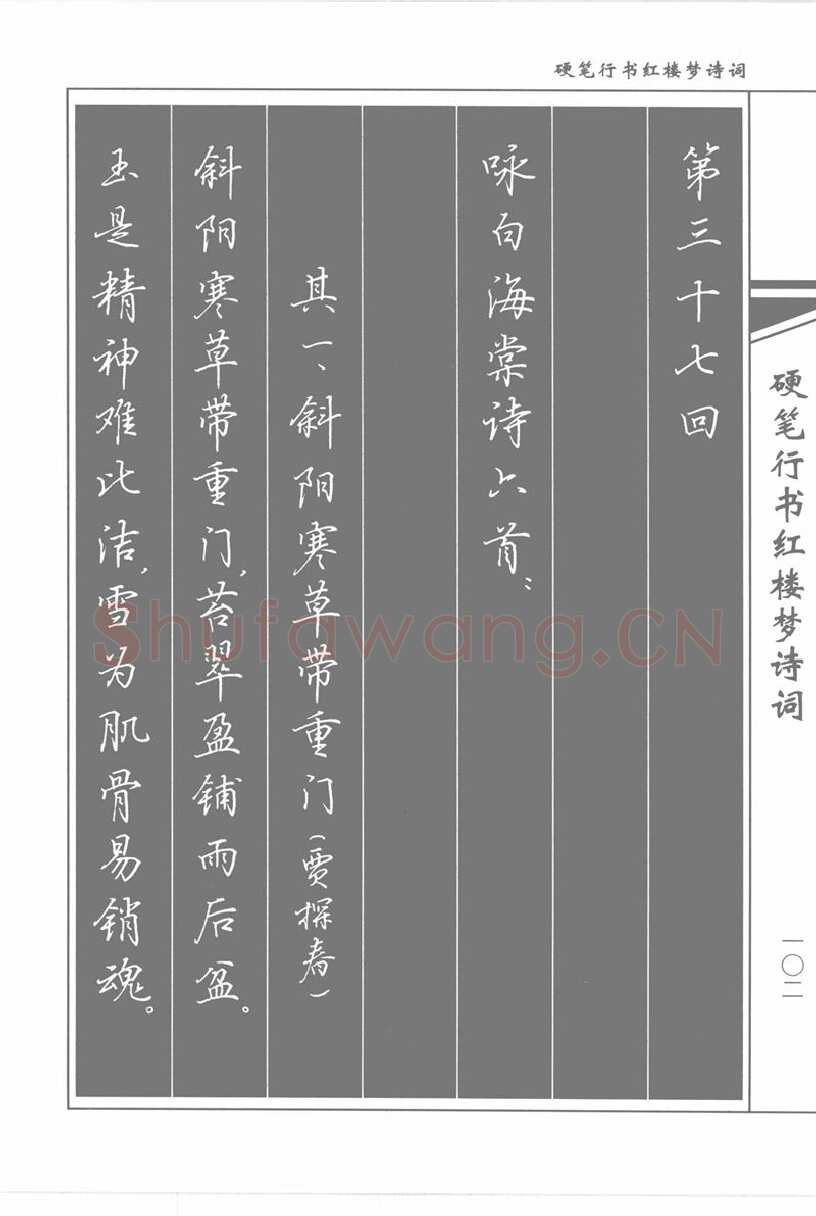 硬笔行书红楼梦诗词
第三十七回
咏白海棠诗六首：
其一、斜阳寒草带重门（贾探春）
斜阳寒草带重门，苔翠盈铺雨后盆。
玉是精神难比洁，雪为肌骨易销魂。
硬笔行书红楼梦诗词
一〇二
Shufawang.CN